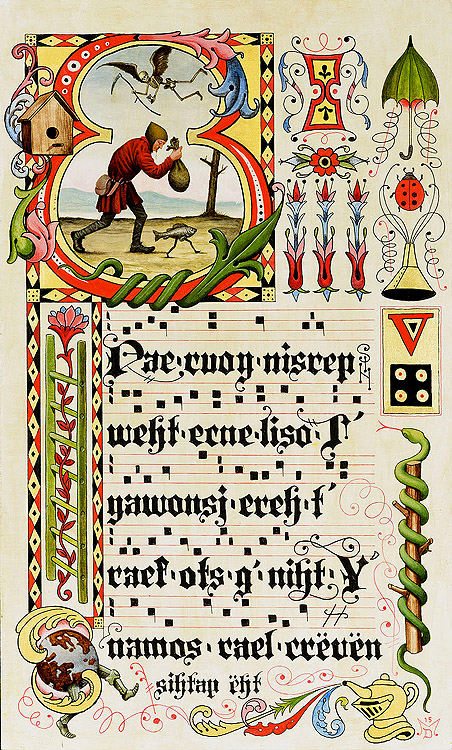 Rae·ruoy·nisrep
weht·ecne·liso·T'
yawonsj·ereh·t'
raef·ots·g'niht·Y'
namos·rael·crëvën
sihtap ëht
15